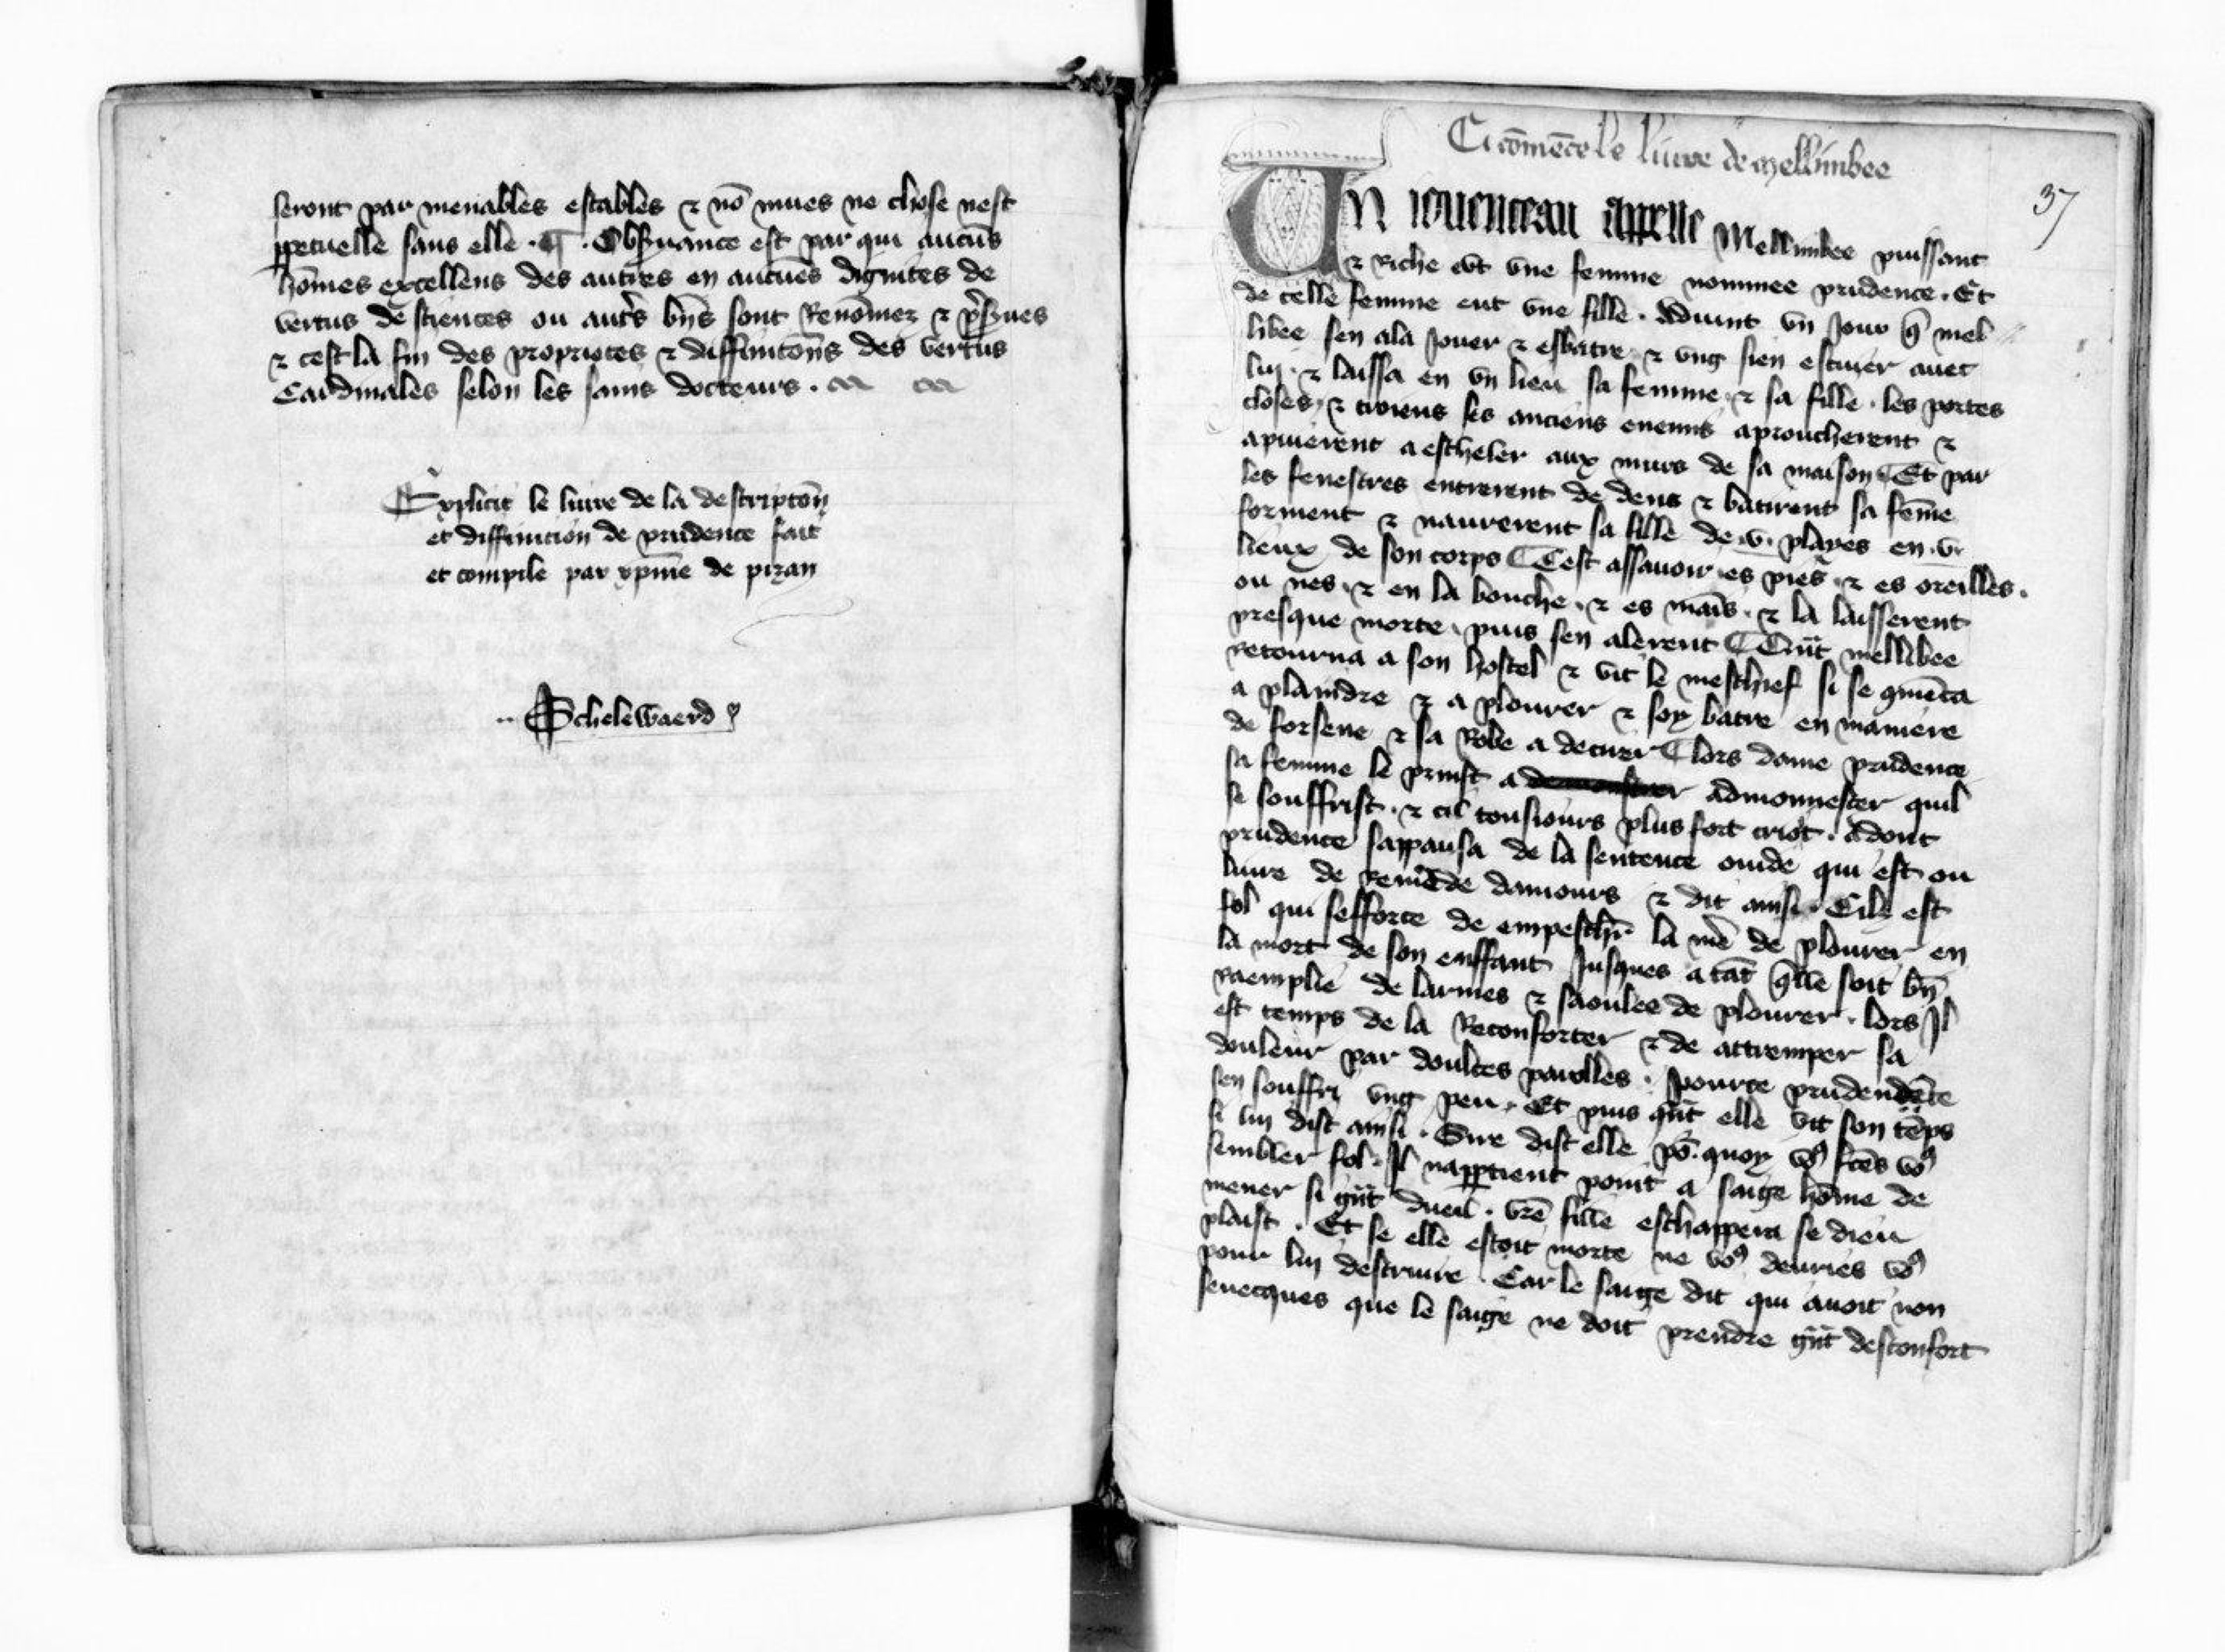 seront par menables estables ⁊ nō mues ne chose nest
ppetuelle sans elle . ¶ . Obsuance est par qui aucūs
hōmes excellens des autres en aucūes dignites de
vertus de sciences ou autrs bn̄s sont Renōmez ⁊ p̄suez
⁊ cest la fin des proprietes ⁊ diffinicōns des vertus
Cardinales selon les sains docteurs .
Explicit le liure de la descriptōn
et diffinicion de prudence fait
et compile par xpīne de pizan
Schelewaerd
Ci cōmēce le liure de mellimbee
37
Un jouuenceau appelle Mellimbee puissant
⁊ riche eut vne femme nommee prudence . Et
de celle femme eut vne fille . Aduint vn Jour q̄ mel
libee sen ala Jouer ⁊ esbatre ⁊ vng sien escuier auec
luy . ⁊ laissa en vn lieu sa femme . ⁊ sa fille . les portes
closes . ⁊ troiens ses anciens enemis aproucherent ⁊
apuierent a escheler aux murs de sa maison ¶ Et par
les fenestres entrerent de dens ⁊ batirent sa fēme
forment ⁊ naurerent sa fille de .v. playes en .v.
lieux de son corps ¶ Cest assauoir es pies . ⁊ es oreilles .
ou nes . ⁊ en la bouche . ⁊ es maīs . ⁊ la laisserent
presque morte . puis sen alerent ¶ Qūt mellibee
retourna a son hostel ⁊ vit le meschief si se 9mēca
a plaindre ⁊ a plourer ⁊ soy batre en maniere
de forsene ⁊ sa Robe a decirer ¶ lors dame prudence
sa femme le prinst a admonnester quil
se souffrist . ⁊ cil tousiours plus fort criot . adont
prudence sappansa de la sentence ouide qui est ou
liure de Remede damours ⁊ dit ainsi . Cilz est
fol qui sefforce de empeschr̄ la mē de plourer en
la mort de son enffant Jusques a tāt q̄lle soit bn̄
raemplie de larmes ⁊ saoulee de plourer . lors Jl
est temps de la Reconforter ⁊ de attremper sa
douleur par doulces parolles . pource prudendēce
sen souffri vng peu . Et puis qūt elle vit son tēps
si luy dist ainsi . Sire dist elle pō. quoy vo9 fctēs vo9
sembler fol . Jl nappartient point a saige hōme de
mener si gūt dueil . vrē fille eschappera se dieu
plaist . Et se elle estoit morte ne vo9 deuries vo9
pour luy destruire . Car le saige dit qui auoit non
senecques que le saige ne doit prendre gūt desconfort